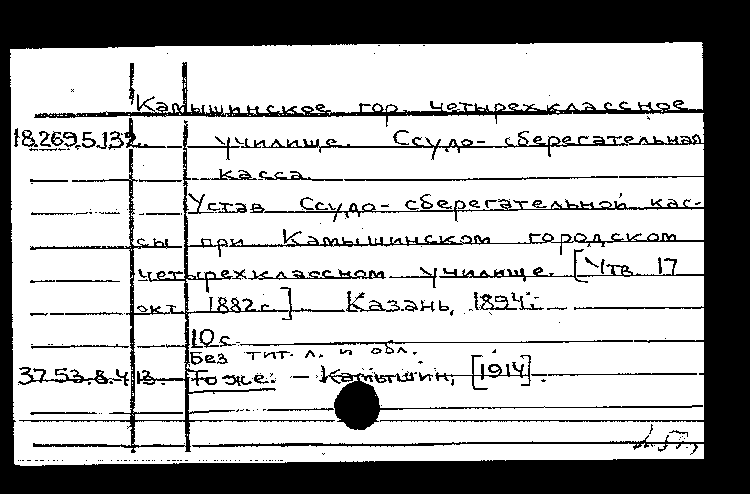 Камышинское гор. четырехклассное
18.269.5.132. училище. Ссудо-сберегательная
касса.
Устав Ссудо-сберегательной кас-
сы при Камышинском городском
четырехклассном училище. [Утв. 17
окт. 1882 г.] Казань, 1894.
10 с.
Без тит. л. и обл.
37.53.8.413. То же. – Камышин, [1914].